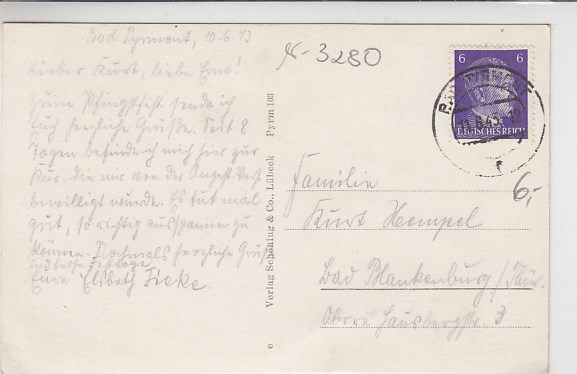 Bad Pyrmont, 10.6.43
Lieber Kurt, liebe Erna!
Zum Pfingstfest sende ich
Euch herzliche Grüße. Seit 8
Tagen befinde ich mich hier zur
Kur, die mir von der
bewilligt wurde. Es tut mal
gut, so richtig ausspannen zu
können. Nochmals herzliche Grüße
Eure Elsbeth Fieke.
Verlag Schöning & Co., Lübeck Pyrm 103
x-3280
6 6
DEUTSCHES REICH
11.6.43
6,-
Familie
Kurt Hempel
Bad Blankenburg / Thür.
Obere 3